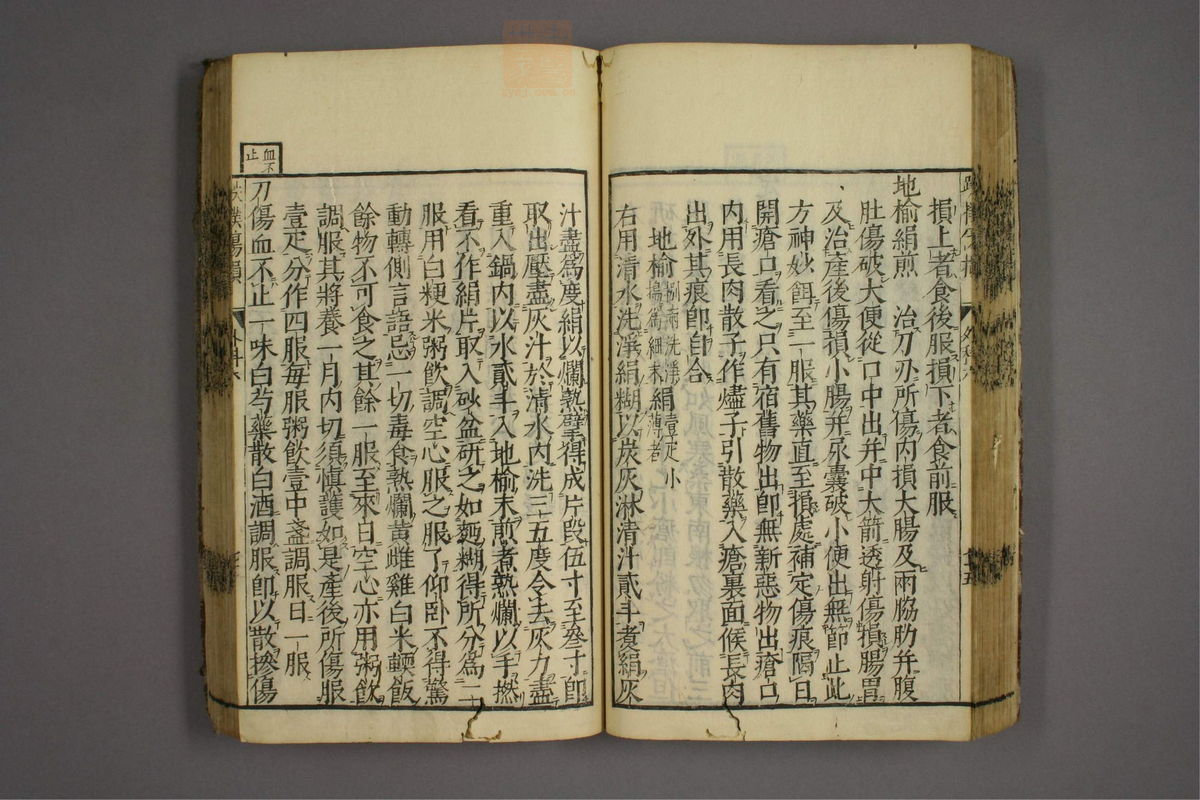 損上者食後服損下者食前服
地榆絹煎 治刀刃所傷內損大腸及兩脇肋并腹
肚傷破大便從口中出并中大箭透射傷損腸胃
及治產後傷損小腸并尿囊破小便出無節止此
方神妙餌至一服其藥直至損處補定傷痕隔日
開瘡口看之只有宿舊物出卽無新惡物出瘡口
內用長肉散子作燼子引散藥入瘡裏面候長肉
出外其痕卽自合
地榆捌兩洗淨搗爲細末 絹壹疋小薄者
右用清水洗淨絹糊以炭灰淋清汁貳斗煮絹灰
汁盡爲度絹以爛熟擘得成片段伍寸至叄寸卽
取出壓盡灰汁於淸水內洗三五度令去灰力盡
重入鍋內以水貳斗入地榆末煎煮熟爛以手撚
看不作絹片取入砂盆研之如麪糊得所分爲二
服用白粳米粥飮調空心服之服了仰卧不得驚
動轉側言語忌一切毒食熟爛黃雌雞白米輭飯
餘物不可食之其餘一服至來日空心亦用粥飮
調服其將養一月內切須愼護如是產後所傷服
壹疋分作四服每服粥飮壹中盞調服日一服
血不止
刀傷血不止一味白芍藥散白酒調服卽以散摻傷